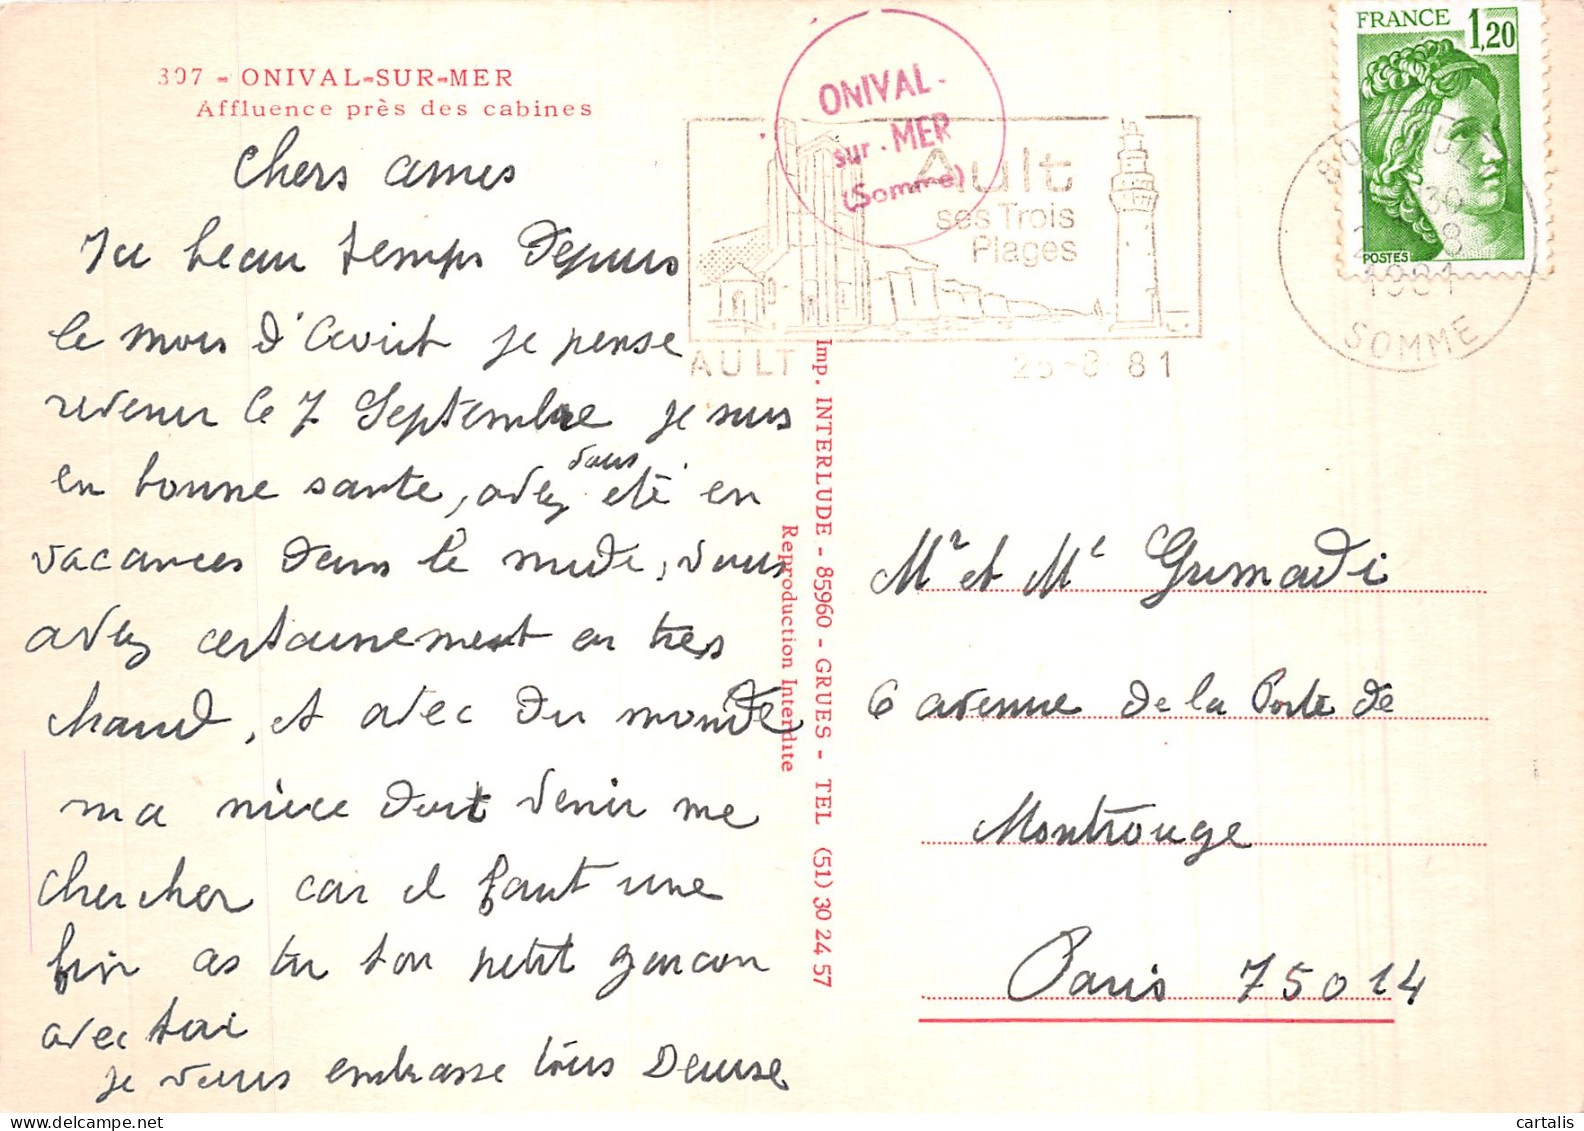 307 - ONIVAL-SUR-MER
Affluence près des cabines
Chers amis
Ici beau temps depuis
le mois d'Avril je pense
revenir le 7 Septembre je suis
en bonne sante, avez vous été en
vacances dans le midi, vous
avez certainement eu tres
chaud, et avec du monde
ma niece doit venir me
chercher car il faut une
fin as tu ton petit garcon
avec toi
je vous embrasse tous Denise
ONIVAL-
sur-MER
(Somme)
Ault
ses Trois
Plages
AULT 25-8 81
FRANCE 1,20
POSTES
80 AULT
30
8
1981
SOMME
Imp. INTERLUDE - 85960 - GRUES - TEL (51) 30 24 57
Reproduction Interdite
Mr et Me Grimadi
6 avenue de la Porte de
Montrouge
Paris 75014
cartalis